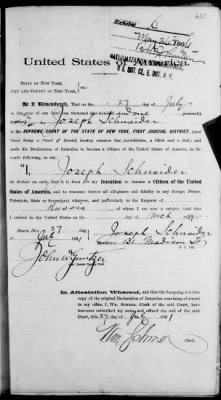 United States of
STATE OF NEW YORK,
CITY AND COUNTY OF NEW YORK,
Be it Remembered, That on the 27 day of July
in the year of our Lord one thousand nine hundred and One personally
Joseph Schnaider
in the SUPREME COURT OF THE STATE OF NEW YORK, FIRST JUDICIAL DISTRICT, (said
Court being a Court of Record, having common law jurisdiction, a Clerk and a Seal), and
made his Declaration of Intention to become a Citizen of the United States of America, in the
words following, to wit:
I, Joseph Schnaider
do declare on oath, that it is bona fide my Intention to become a Citizen of the United
States of America, and to renounce forever all allegiance and fidelity to any foreign Prince,
Potentate, State or Sovereignty whatever, and particularly to the Emperor of
Russia of whom I am now a subject (and that
I arrived in the United States on the day of
Sworn, this 27
day of July 1901
Joseph Schnaider
131 Madison St
Clerk
In Attestation Whereof, and that the foregoing is a true
copy of the original Declaration of Intention remaining of record
in my office, I, Wm. Sohmer, Clerk of the said Court, have
hereunto subscribed my name and affixed the seal of the said
Court, this 27 day of July 1901
Wm Sohmer
Clerk.